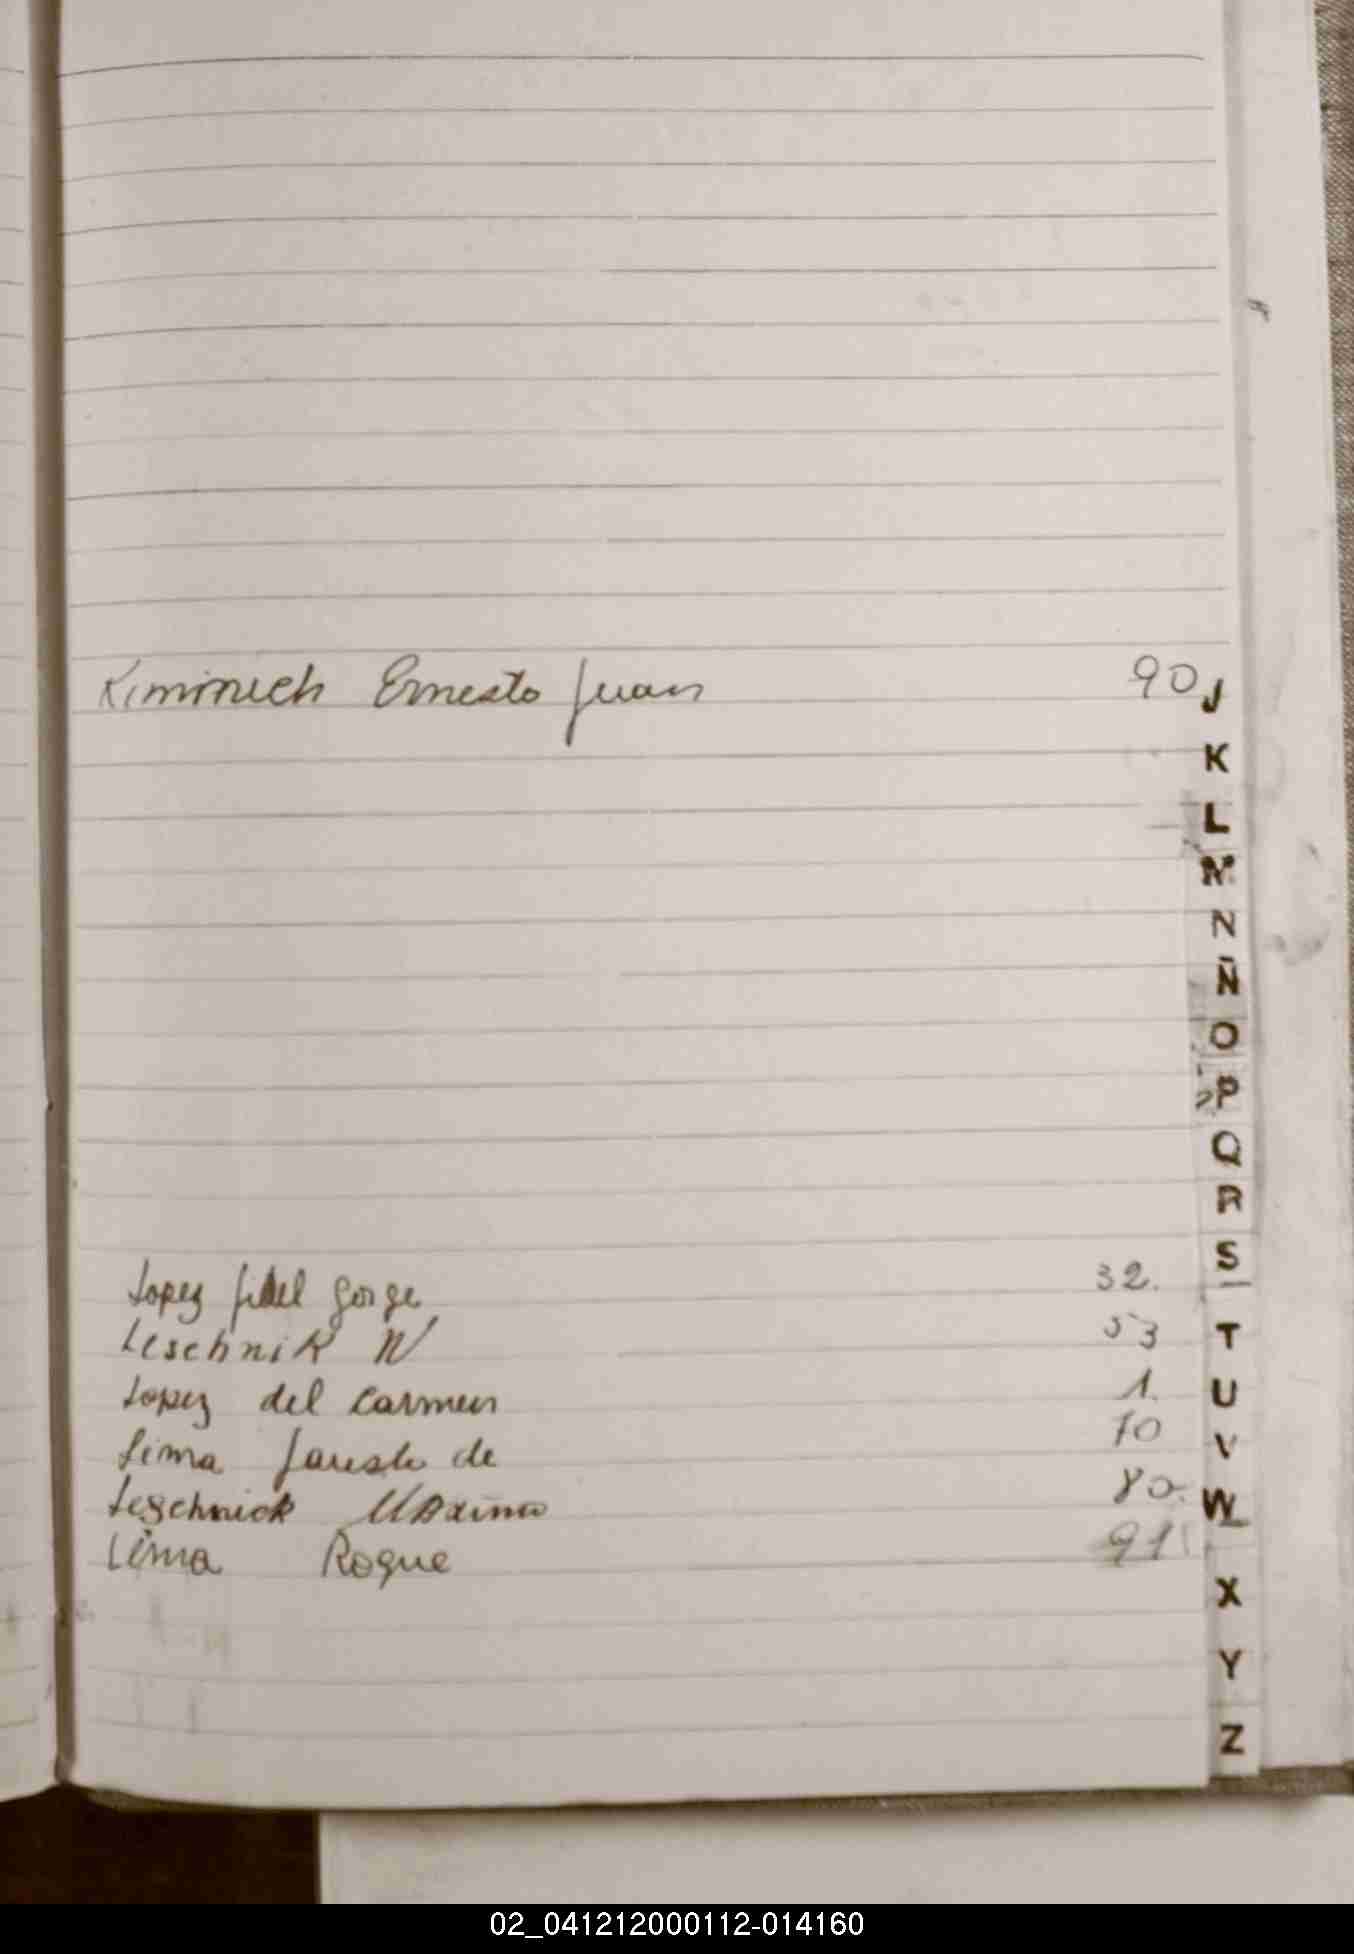 Kiminich Ernesto Juan 90
J
K
L
M
N
Ñ
O
P
Q
R
S
T
U
V
W
X
Y
Z
Lopez Fidel Jorge 32.
Leschnik N 53
Lopez del Carmen 1.
Lima Fausto de 70
Leschnick Maximo 80.
Lima Roque 91
02_041212000112-014160